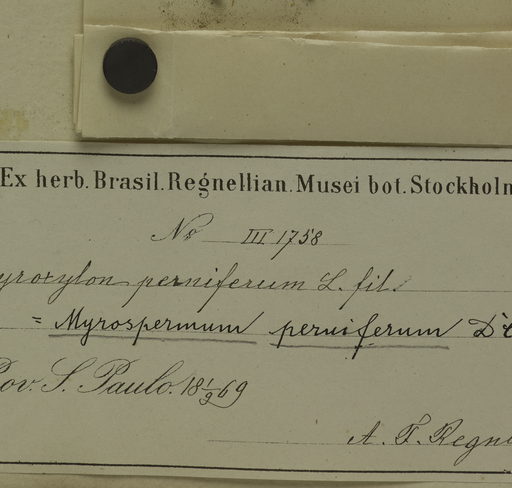 Ex herb. Brasil. Regnellian. Musei bot. Stockholm
No III 1758
yroxylon peruiferum L. fil.
= Myrospermum peruiferum D'C
Pov. S. Paulo. 18 1/9 69
A. F. Regne